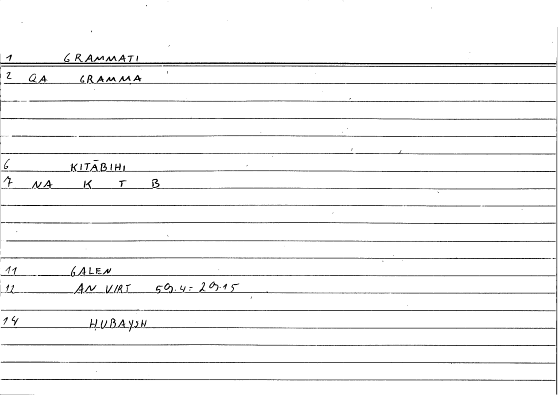 1 GRAMMATI
2 QA GRAMMA
6 KITĀBIHI
7 NA K T B
11 GALEN
12 AN VIRT 59.4 = 29.15
14 ḤUBAYSH